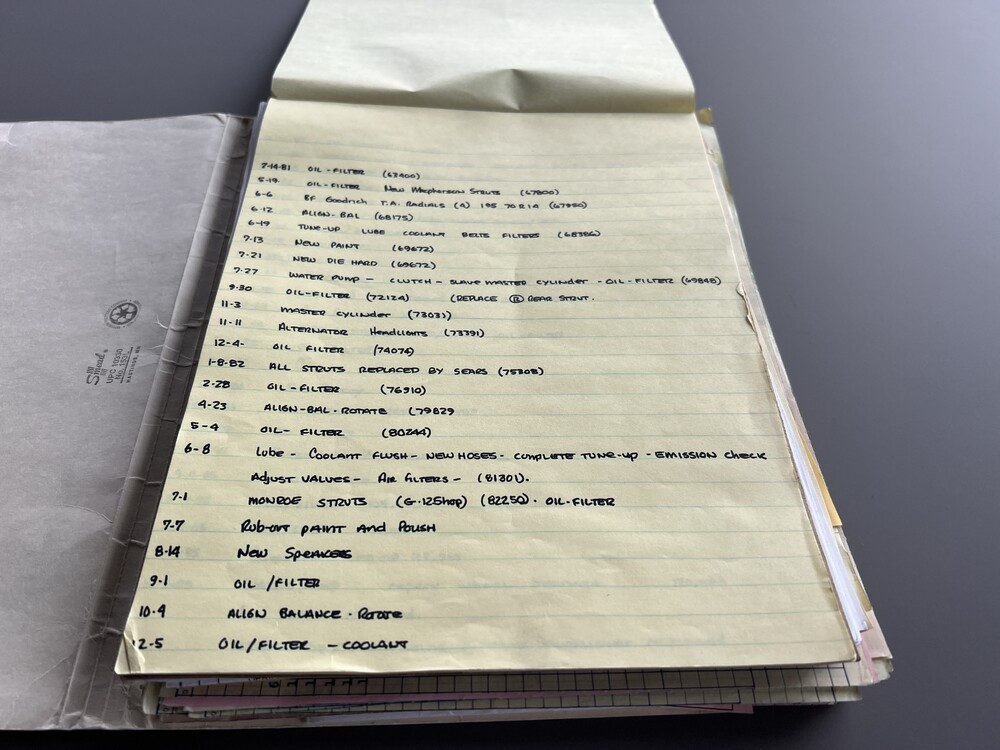 7-14-81 OIL-FILTER (63400)
5-19. OIL-FILTER New Macpherson Struts (67800)
6-6 BF Goodrich T.A. RADIALS (4) 195 70 R 14 (67950)
6-12 ALIGN-BAL (68175)
6-19 TUNE-UP LUBE COOLANT BELTS FILTERS (68386)
7-13 NEW PAINT (69672)
7-21 NEW DIE HARD (69672)
7-27 WATER PUMP - CLUTCH - SLAVE MASTER CYLINDER - OIL-FILTER (69848)
9-30 OIL-FILTER (72124) (REPLACE Ⓡ REAR STRUT.
11-3 MASTER CYLINDER (73031)
11-11 ALTERNATOR HEADLIGHTS (73391)
12-4- OIL FILTER (74074)
1-8-82 ALL STRUTS REPLACED BY SEARS (75308)
2-28 OIL-FILTER (76910)
4-23 ALIGN-BAL-ROTATE (79829
5-4 OIL-FILTER (80244)
6-8 Lube - COOLANT FLUSH - NEW HOSES - COMPLETE TUNE-UP - EMISSION CHECK
ADJUST VALVES - AIR FILTERS - (81301).
7-1 MONROE STRUTS (82250). OIL-FILTER
7-7 RUB-OUT PAINT AND POLISH
8-14 New Speakers
9-1 OIL/FILTER
10-4 ALIGN BALANCE - ROTATE
12-5 OIL/FILTER - COOLANT
Smead
UPC 10330
HASTINGS, MN